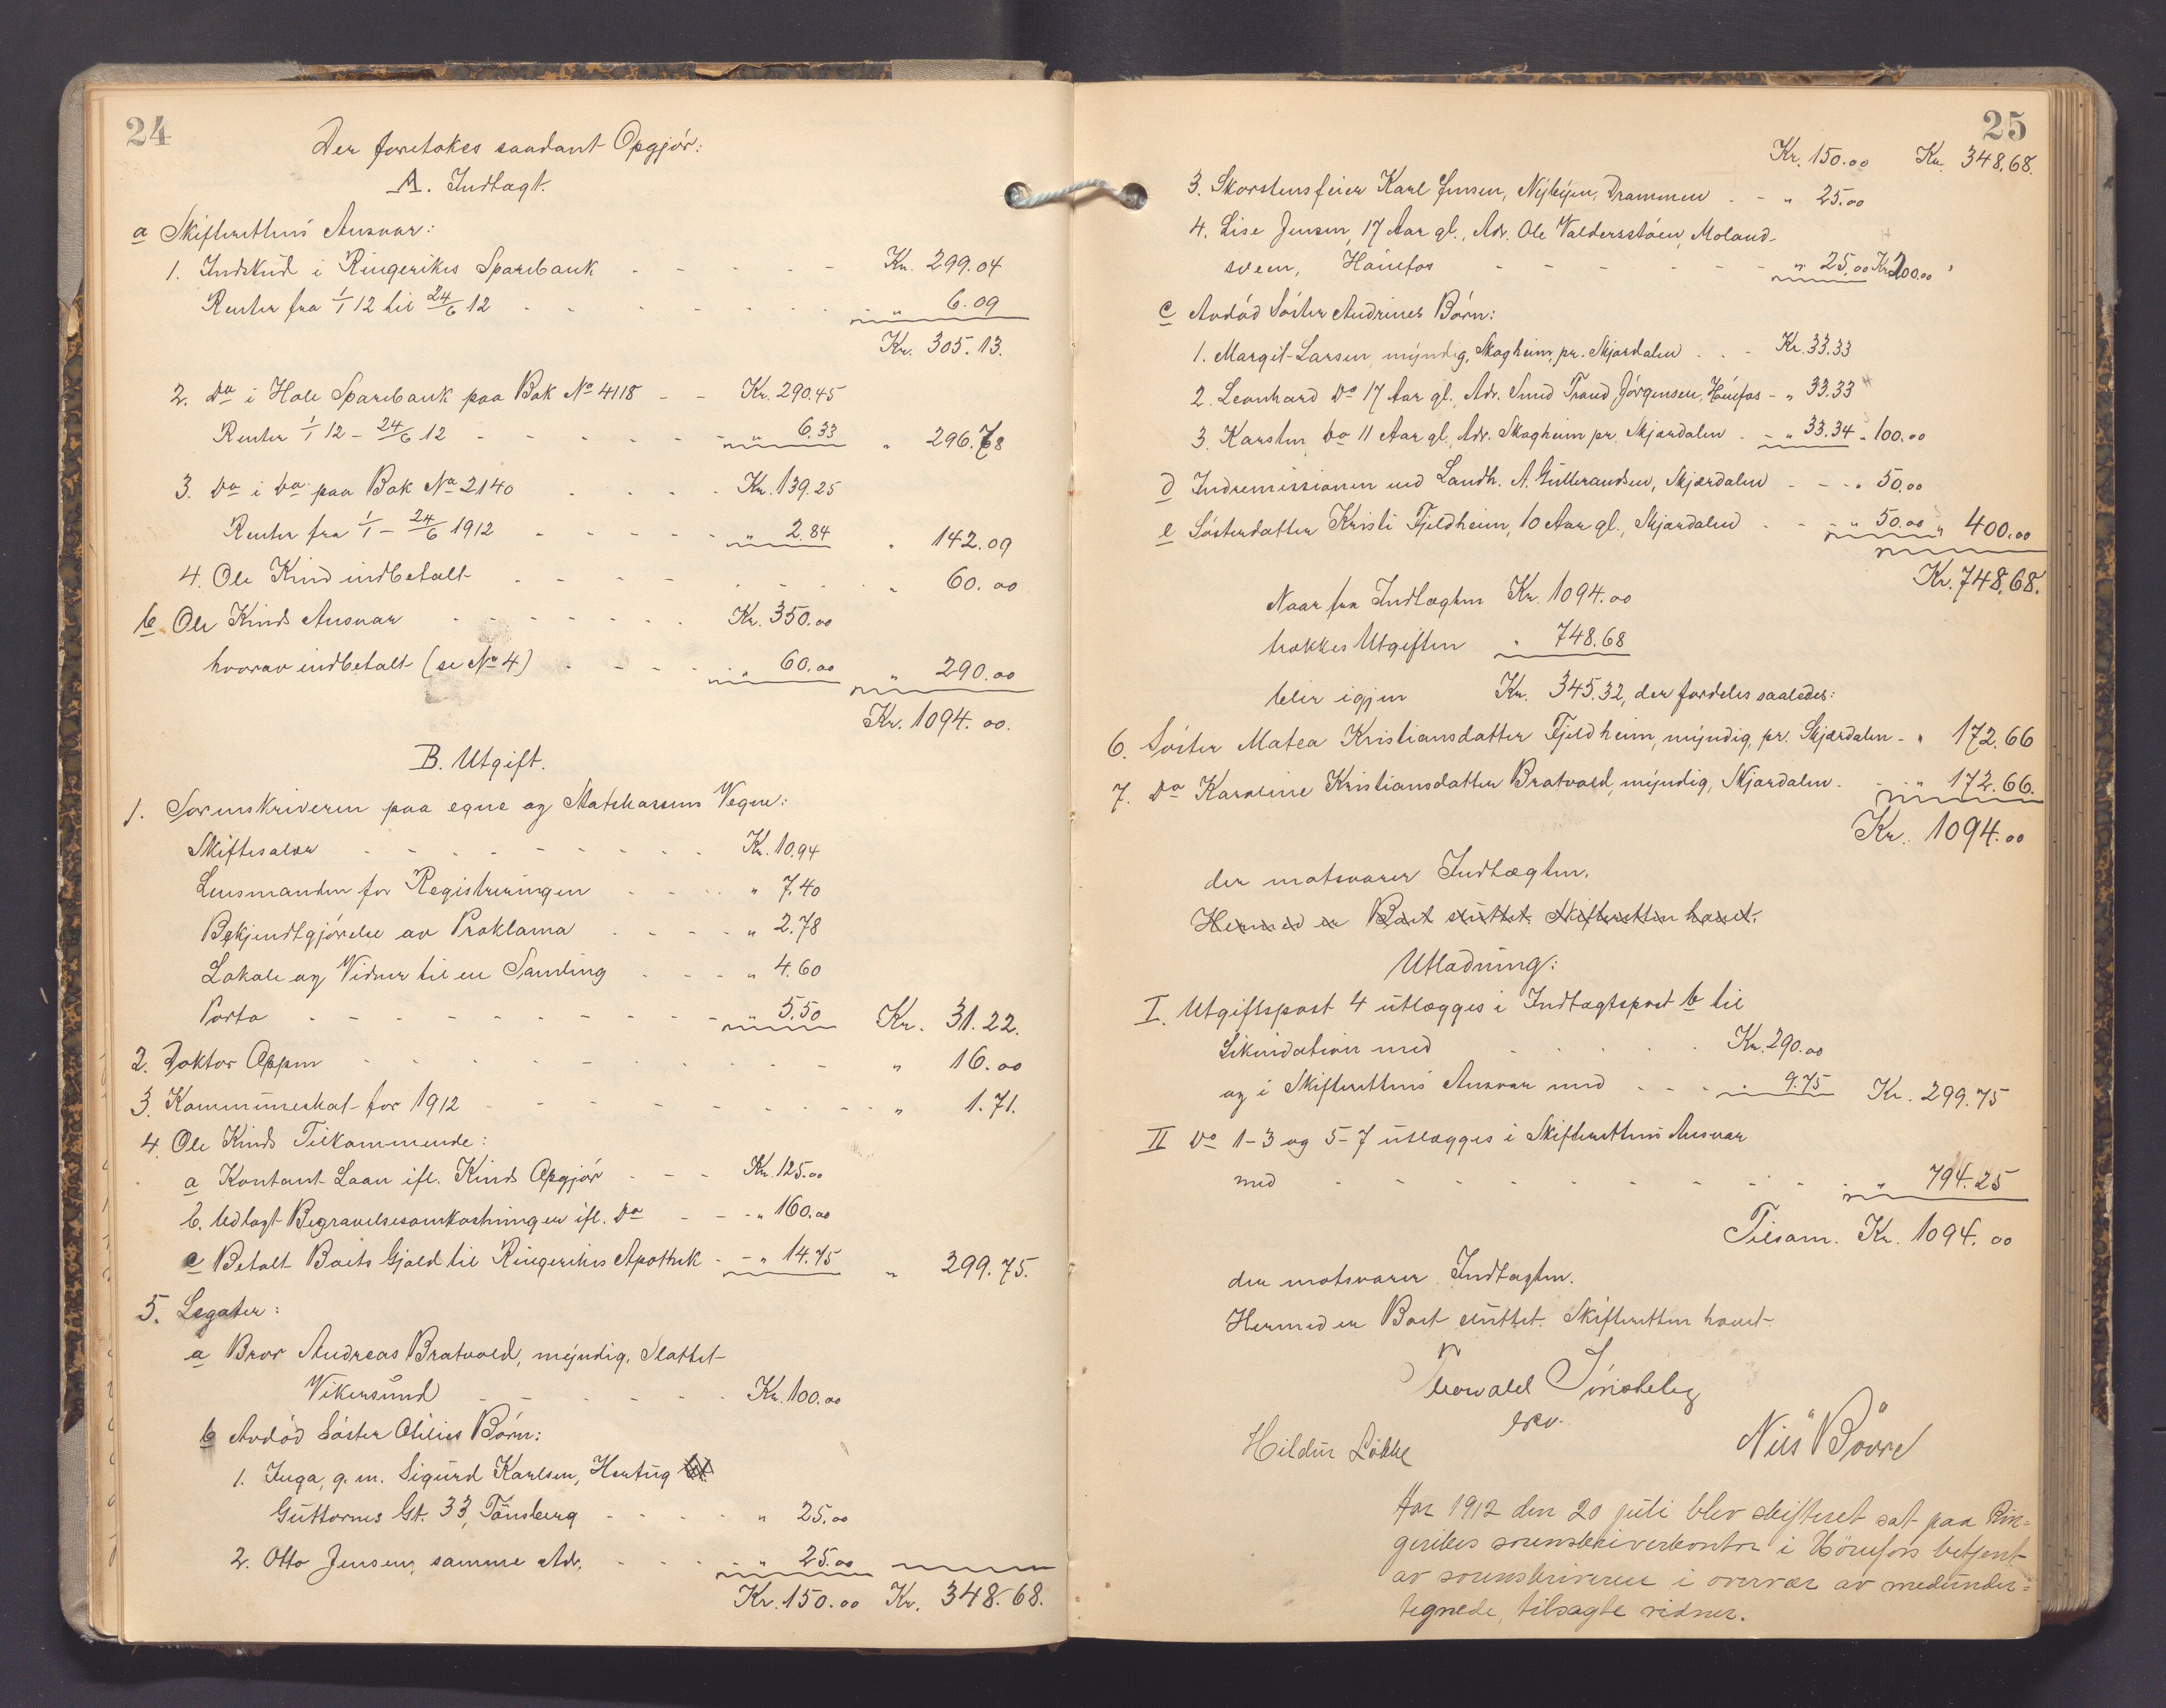 24
Der foretokes saadant Opgjör:
A. Indtægt.
a Skifterettens Ansvar:
1. Indskud i Ringerikes Sparebank - - - - - Kr. 299.04
Renter fra 1/1 12 til 24/6 12 - - - - - - - " 6.09
Kr. 305.13.
2. Do i Hole Sparebank paa Bok No 4118 - - Kr. 290.45
Renter 1/1 12 - 24/6 12 - - - - - - " 6.33 " 296.78
3. Do i do paa Bok No 2140 - - - - Kr. 139.25
Renter fra 1/1 - 24/6 1912 - - - - - " 2.84 " 142.09
4. Ole Kind indbetalt - - - - - - - " 60.00
b. Ole Kinds Ansvar - - - - - - - Kr. 350.00
hvorav indbetalt (se No 4) - - - - " 60.00 " 290.00
Kr. 1094.00.
B. Utgift.
1. Sorenskriveren paa egne og Statskassens Vegne:
Skiftesalær - - - - - - - - - Kr. 10.94
Lensmanden for Registreringen - - - - " 7.40
Bekjendtgjörelse av Proklama - - - - " 2.78
Lokale og Vidner til en Samling - - - - " 4.60
Porto - - - - - - - - - " 5.50 Kr. 31.22.
2. Doktor Appen - - - - - - - - - " 16.00
3. Kommuneskat for 1912 - - - - - - - - " 1.71.
4. Ole Kinds Tilkommende:
a Kontant Laan ifl. Kinds Opgjör - - - Kr. 125.00
b. Utlagt Begravelsesomkostningen ifl. do - - - " 160.00
c Betalt Boets Gjæld til Ringerikes Apothek - - " 14.75 " 299.75.
5. Legater:
a Bror Andreas Bratvold, myndig, Slattet
Vikersund - - - - - - Kr. 100.00
b Avdöd Söster Otilies Börn:
1. Inga, g. m. Sigurd Karlsen, Hertug
Guttorms Gt. 33, Tönsberg - - - - " 25.00
2. Otto Jensen, samme Adr. - - - - " 25.00
Kr. 150.00 Kr. 348.68.
25
Kr. 150.00 Kr. 348.68.
3. Skorstensfeier Karl Jensen, Nybyen, Drammen - - " 25.00
4. Lise Jensen, 17 Aar gl., Adr. Ole Valdersstöen, Moland-
sveen, Hönefos - - - - - - " 25.00 Kr. 200.00
c Avdöd Söster Andrines Börn:
1. Margit Larsen, myndig, Skogheim, pr. Skjærdalen - - Kr. 33.33
2. Leonhard do 17 Aar gl., Adr. Smed Trond Jörgensen, Hönefos - " 33.33
3. Karsten do 11 Aar gl., Adr. Skogheim pr. Skjærdalen - - " 33.34 " 100.00
d Indremissionen ved Landh. A. Gulbrandsen, Skjærdalen - - - " 50.00
e Sösterdatter Kristi Fjeldheim, 10 Aar gl., Skjærdalen - - " 50.00 " 400.00
Kr. 748.68.
Naar fra Indtægten Kr. 1094.00
trækkes Utgiften " 748.68
blir igjen Kr. 345.32, der fordeles saaledes:
6. Söster Matea Kristiansdatter Fjeldheim, myndig, pr. Skjærdalen - " 172.66
7. Do Karoline Kristiansdatter Bratvold, myndig, Skjærdalen. - " 172.66.
Kr. 1094.00
der motsvarer Indtægten.
Hermed er Boet sluttet. Skifteretten hævet.
Utlodning:
I. Utgiftspost 4 utlægges i Indtægtspost b til
Likvidation med - - - - - Kr. 290.00
og i Skifterettens Ansvar med - - - " 9.75 Kr. 299.75
II Do 1-3 og 5-7 utlægges i Skifterettens Ansvar
med - - - - - - - - - - " 794.25
Tilsam. Kr. 1094.00
der motsvarer Indtægten.
Hermed er Boet sluttet. Skifteretten hævet.
Hildur Lökke
Nils Bovre
Aar 1912 den 20 juli blev skifteret sat paa Rin=
gerikes sorenskriverkontor i Hönefoss betjent
av sorenskriveren i overvær av medunder=
tegnede, tilsagte vidner.